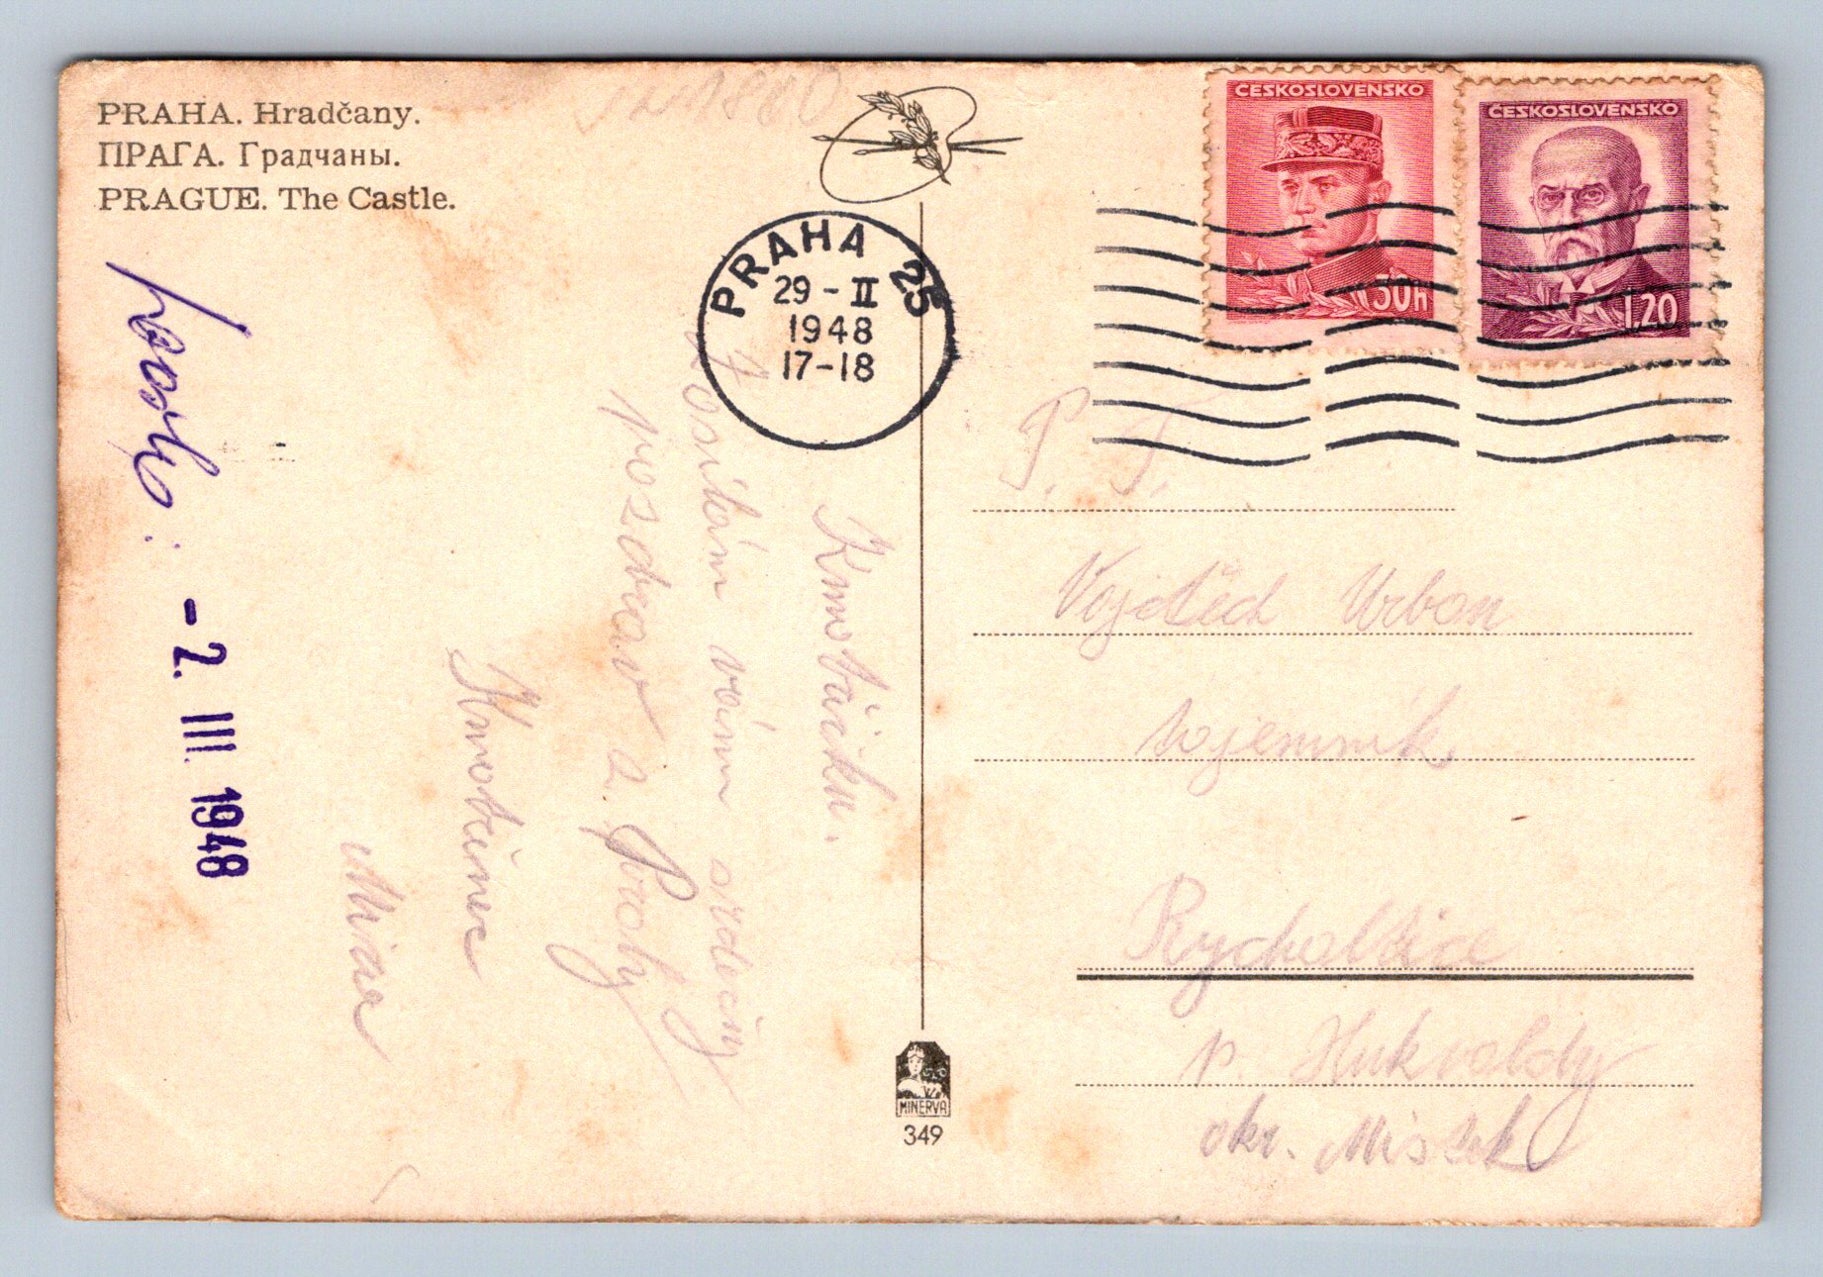 PRAHA. Hradčany.
ПРАГА. Градчаны.
PRAGUE. The Castle.
ČESKOSLOVENSKO
30H
ČESKOSLOVENSKO
1.20
PRAHA 25
29 - II
1948
17-18
- 2. III. 1948
Kmotáčku.
vám srdečný
pozdrav z Prahy
P. T.
Vojtěch Urban
tajemník
Rychaltice
p. Hukvaldy
okr. Místek
MINERVA
349